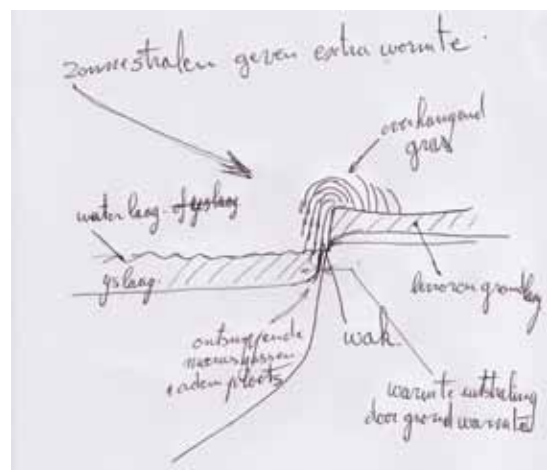 zonnestralen geven extra warmte.
overhangend
gras
water laag of yslaag
yslaag
bevroren grondlaag
ontsnappende
moerasgassen
+ adem plaats
wak
warmte uitstraling
door grond warmte